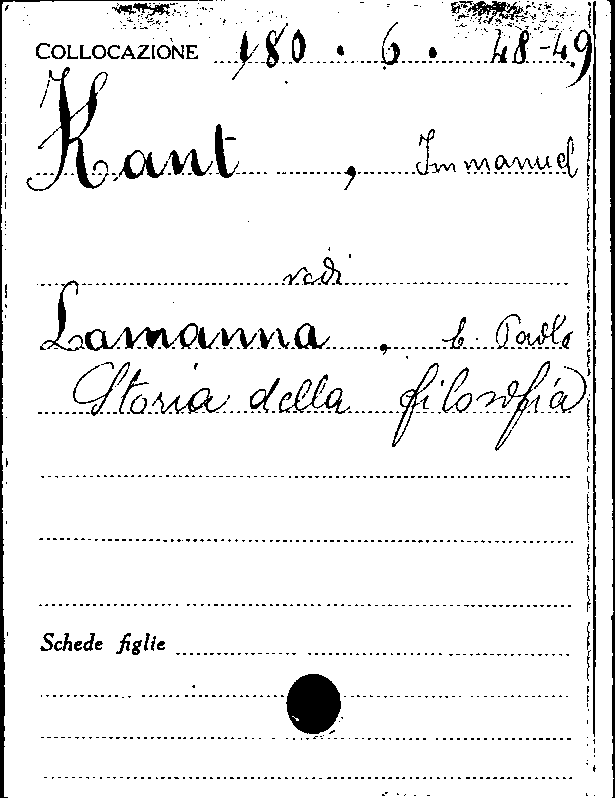 COLLOCAZIONE 180. 6. 48-49
Kant, Immanuel
vedi
Lamanna, E. Paolo
Storia della filosofia
Schede figlie